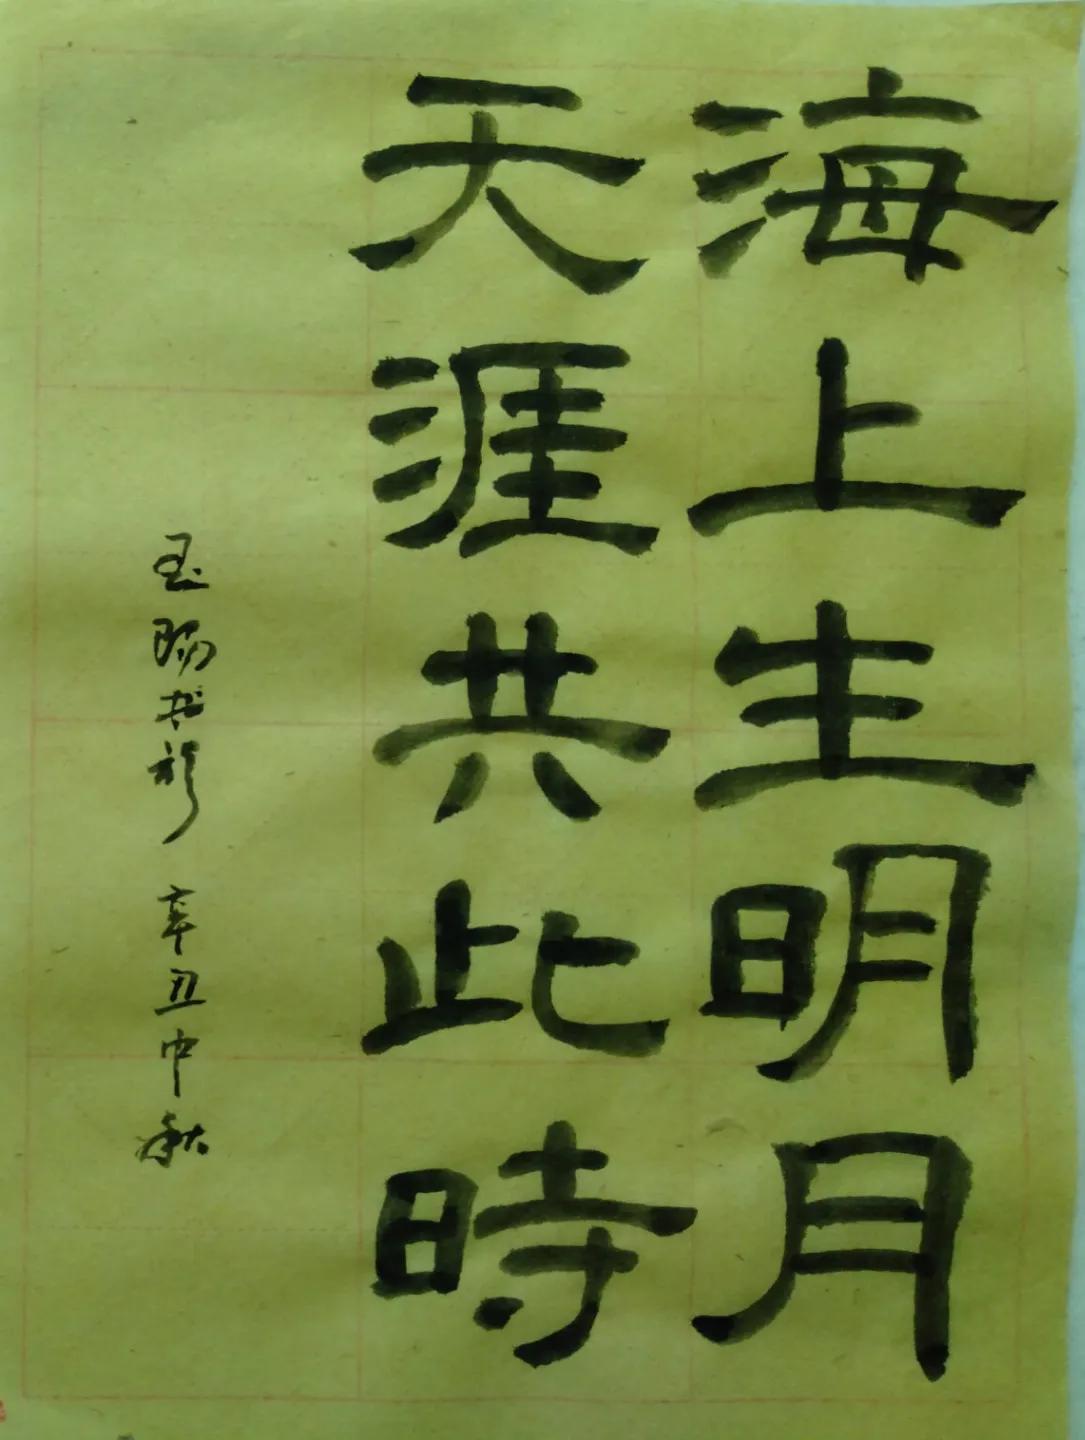 海上生明月
天涯共此時
玉陽书於辛丑中秋